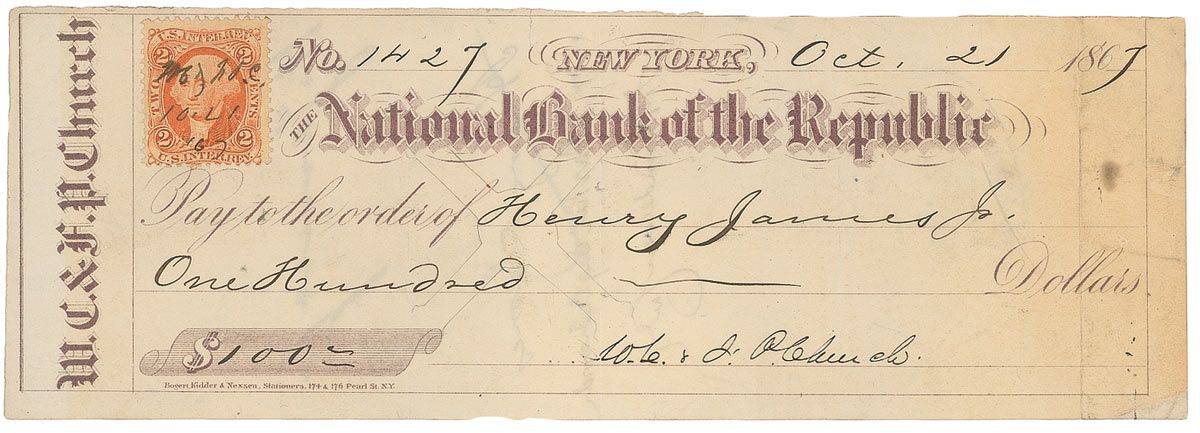 W. C. & F. P. Church
U.S. INTER. REV.
2 2
TWO CENTS
10.21
67
2 2
U.S. INTER. REV.
No. 1427 NEW YORK, Oct. 21 1867
THE National Bank of the Republic
Pay to the order of Henry James Jr.
One Hundred Dollars
$100
W. C. & F. P. Church.
Bogert, Kidder & Nexsen, Stationers, 174 & 176 Pearl St. N.Y.